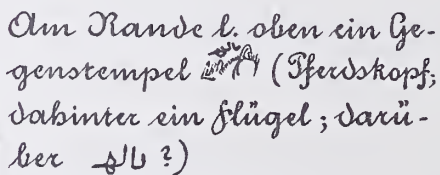 Am Rande l. oben ein Ge-
genstempel (Pferdskopf;
dahinter ein Flügel; darü-
ber ?)